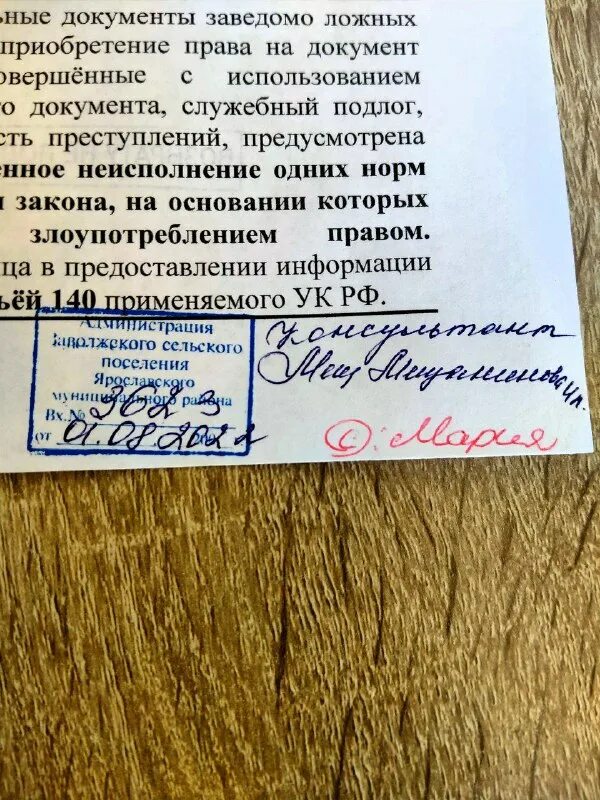 ьные документы заведомо ложных
приобретение права на документ
овершённые с использованием
о документа, служебный подлог,
сть преступлений, предусмотрена
енное неисполнение одних норм
и закона, на основании которых
злоупотреблением правом.
ца в предоставлении информации
ьёй 140 применяемого УК РФ.
Администрация
Заволжского сельского
поселения
Ярославского
муниципального района
Вх.№ 3023
от 01.08.2022
консультант
Мещанинова
©: Мария